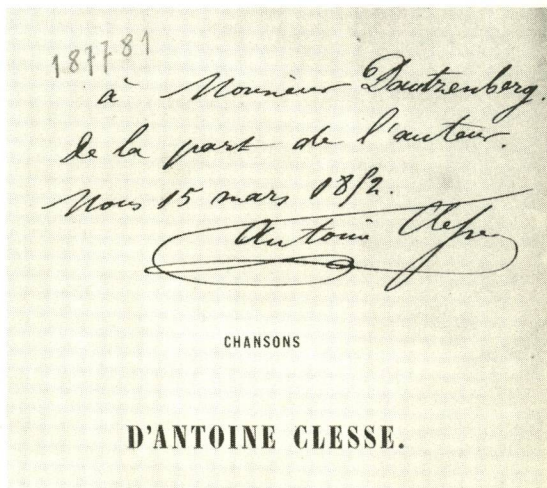 187781
à Monsieur Dautzenberg.
de la part de l'auteur.
Mons 15 mars 1852.
Antoine Clesse
CHANSONS
D'ANTOINE CLESSE.